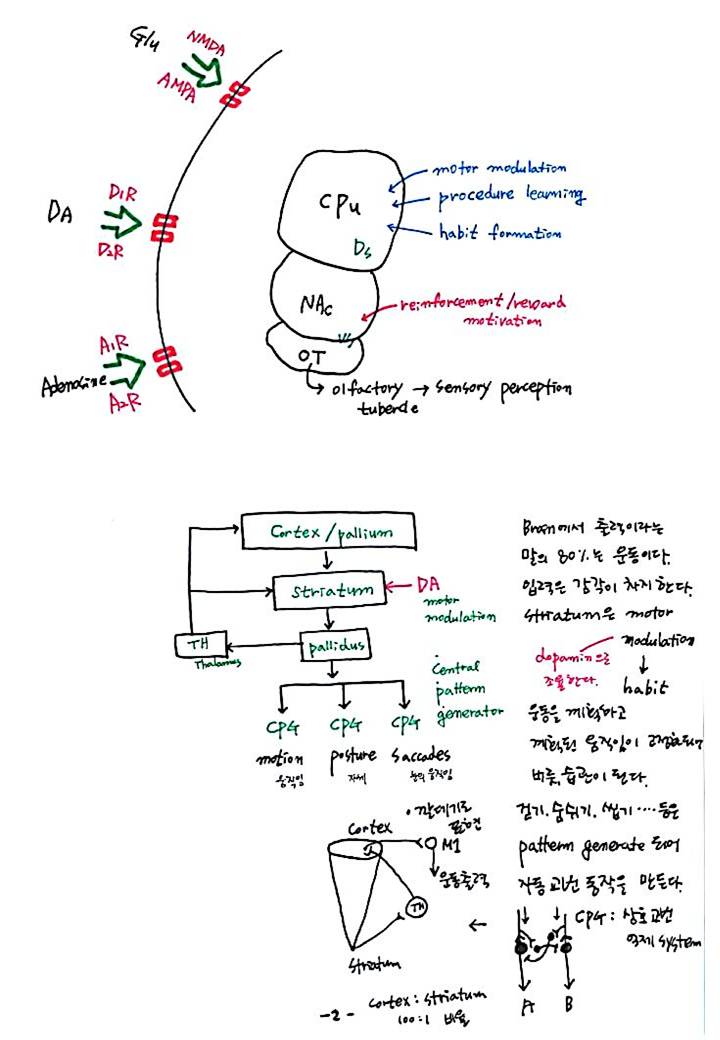 Glu
NMDA
AMPA
DA
D1R
D2R
Adenosine
A1R
A2R
CPu
Ds
NAc
Vs
OT
motor modulation
procedure learning
habit formation
reinforcement/reward
motivation
olfactory → sensory perception
tubercle
Cortex/pallium
striatum
DA
motor
modulation
TH
Thalamus
pallidus
Central
pattern
generator
CPG CPG CPG
motion posture saccades
움직임 자세 눈의 움직임
Brain에서 출력이라는
말의 80%는 운동이다.
입력은 감각이 차지한다.
striatum은 motor
modulation
dopamin으로
조율한다.
habit
운동을 계획하고
계획된 움직임이 고정화되어
버릇, 습관이 된다.
걷기. 숨쉬기. 씹기 ····· 등은
pattern generate 되어
자동 교번 동작을 만든다.
CPG : 상호교번
억제 system
A B
•깔데기로
표현
Cortex
M1
운동출력
TH
striatum
Cortex : striatum
100 : 1 비율
-2-